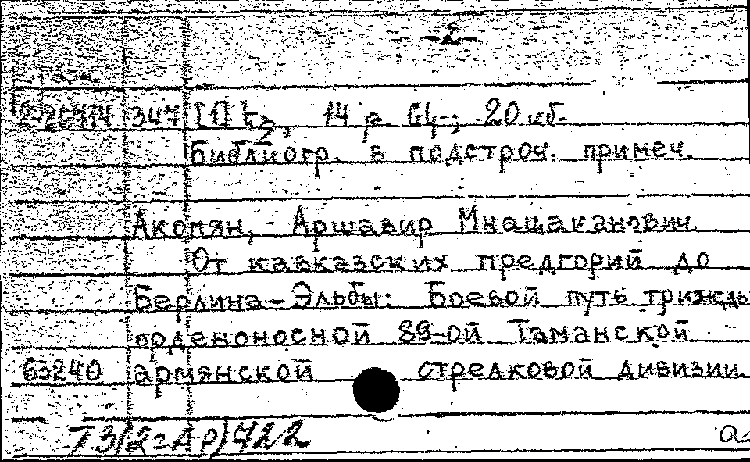 - 2 -
347 [1] 14 20 см.
Библиогр. в подстроч. примеч.
Акопян, Аршавир Мнацаканович
От кавказских предгорий до
Берлина-Эльбы: Боевой путь трижды
орденоносной 89-ой Таманской
63240 армянской стрелковой дивизии
Т3(2=Ар)722 а